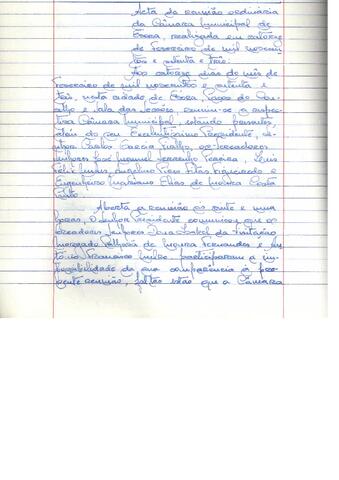 Acta da reunião ordinária
da Câmara Municipal de
Évora, realizada em catorze
de Fevereiro de mil novecen-
tos e setenta e três:
Aos catorze dias do mês de
Fevereiro de mil novecentos e setenta e
três, nesta cidade de Évora, Paços do Con-
celho e sala das sessões, reuniu-se a respec-
tiva Câmara Municipal, estando presentes,
além do seu Excelentíssimo Presidente, se-
nhor Carlos Garcia Fialho, os vereadores
senhores José Manuel Pereira, Luís
Félix Angelino Pires Fitas e
Engenheiro Mariano Elias de Costa
Aberta a reunião às vinte e uma
horas, o senhor Presidente comunicou que os
vereadores senhores Dona Isabel da
Morgado de Moura Fernandes e An-
tónio Francisco participaram a im-
possibilidade da sua comparência à pre-
sente reunião, faltas estas que a Câmara